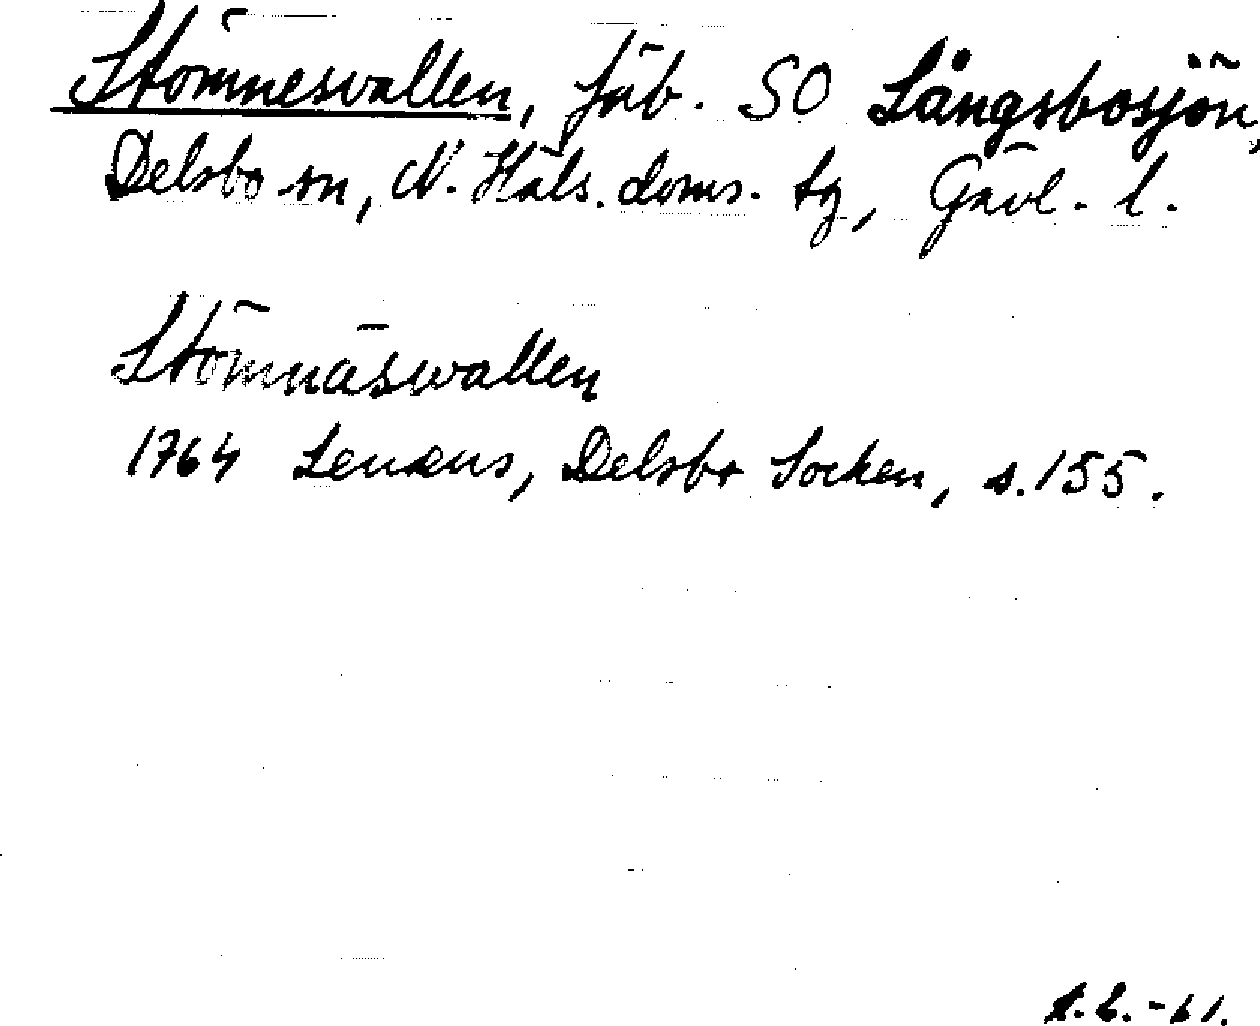 Stömnesvallen, fäb. SO Långsbosjön,
Delsbo sn, N. Häls. doms. tg, Gävl. l.
Stömnäswallen
1764 Lenæus, Delsbo Socken, s. 155.
-61.